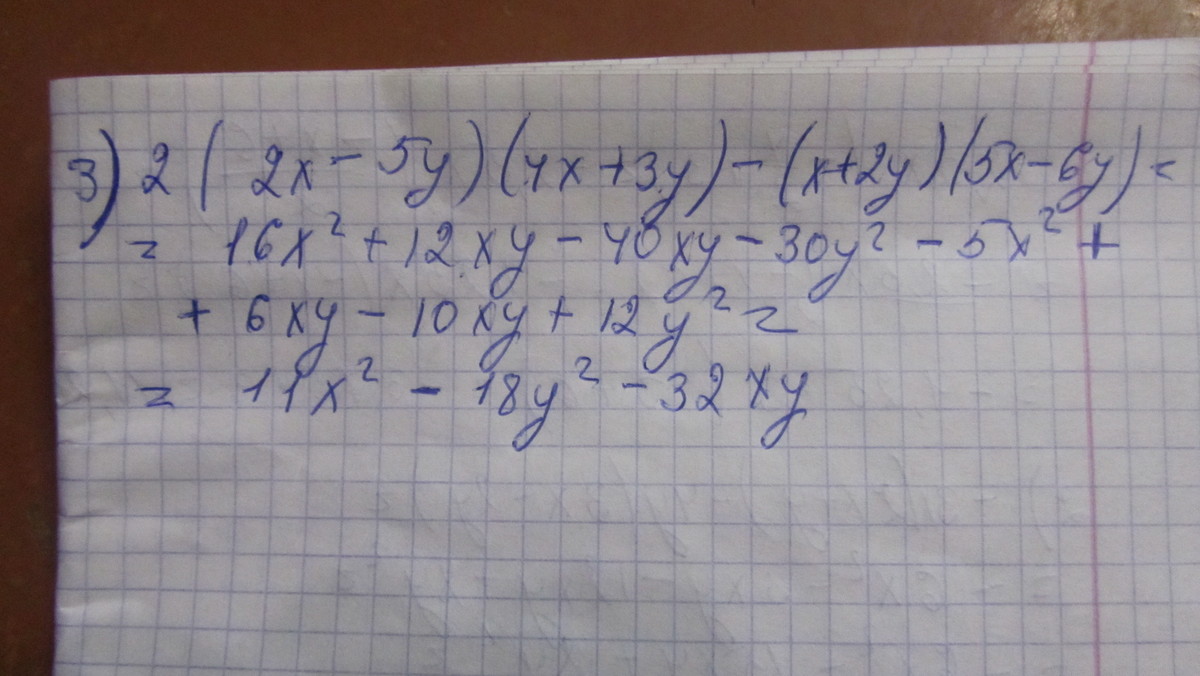 3) 2 ( 2x - 5y) (4x + 3y) - (x + 2y) (5x - 6y) =
= 16x² + 12xy - 40xy - 30y² - 5x² +
+ 6xy - 10xy + 12y² =
= 11x² - 18y² - 32xy